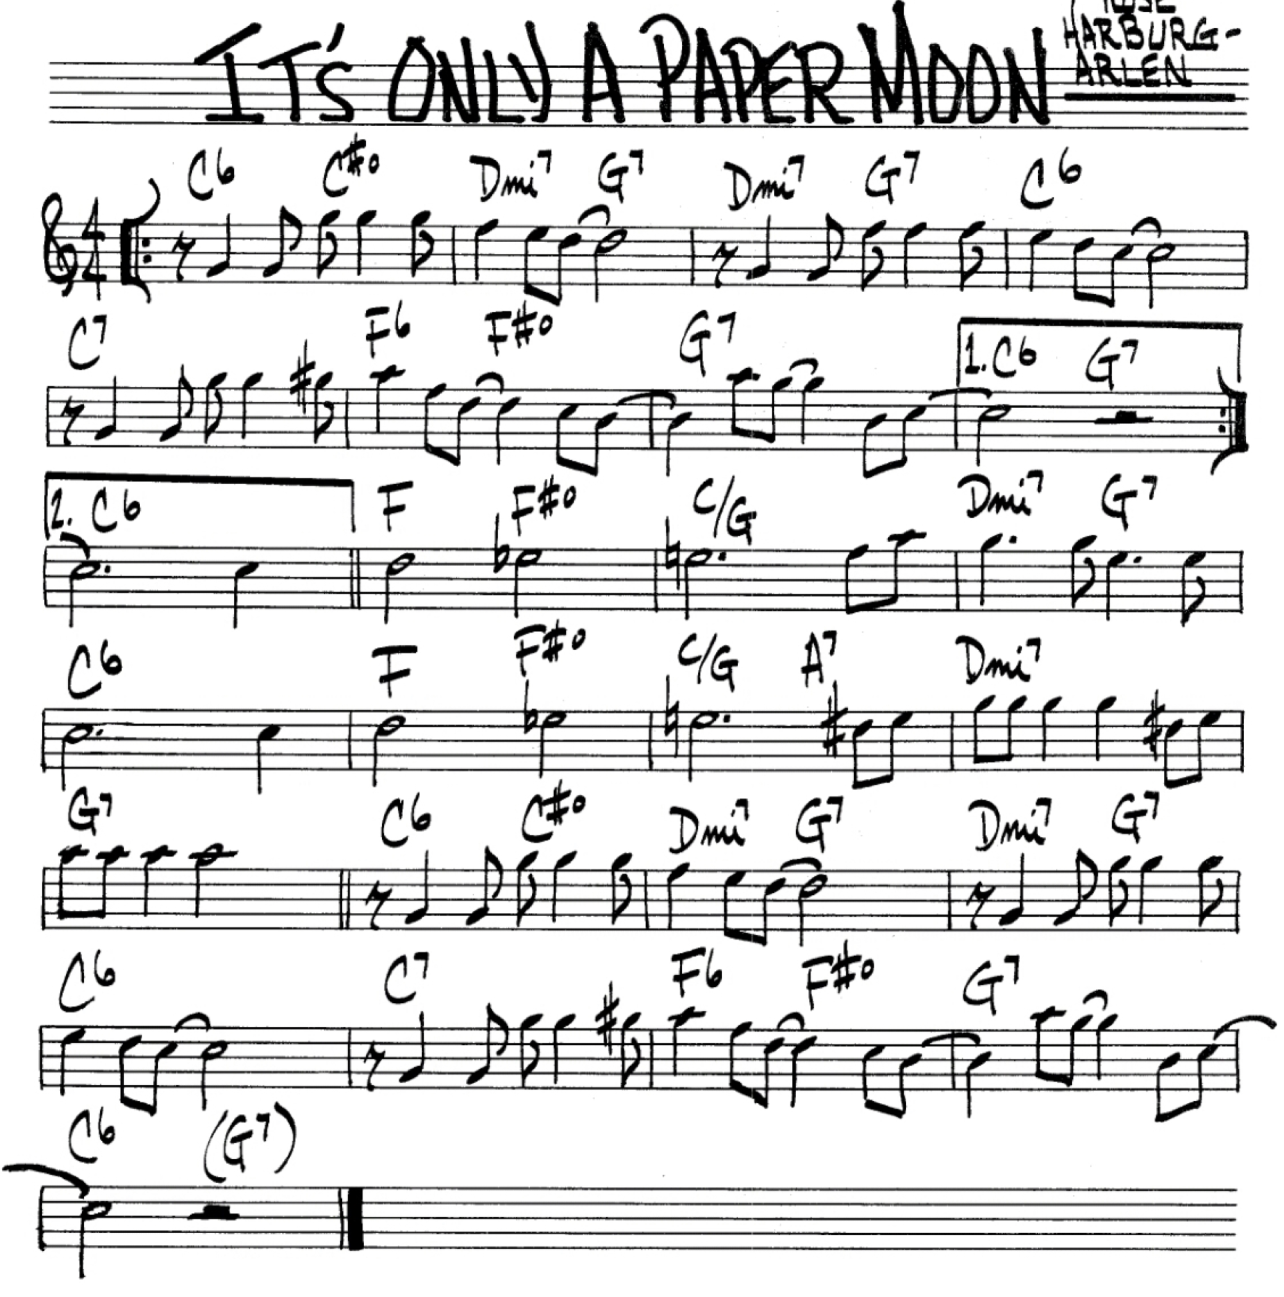 IT'S ONLY A PAPER MOON
ROSE
HARBURG-
ARLEN
C6 C#o Dmi7 G7 Dmi7 G7 C6
4
4
C7 F6 F#o G7 1. C6 G7
2. C6 F F#o C/G Dmi7 G7
C6 F F#o C/G A7 Dmi7
G7 C6 C#o Dmi7 G7 Dmi7 G7
C6 C7 F6 F#o G7
C6 (G7)